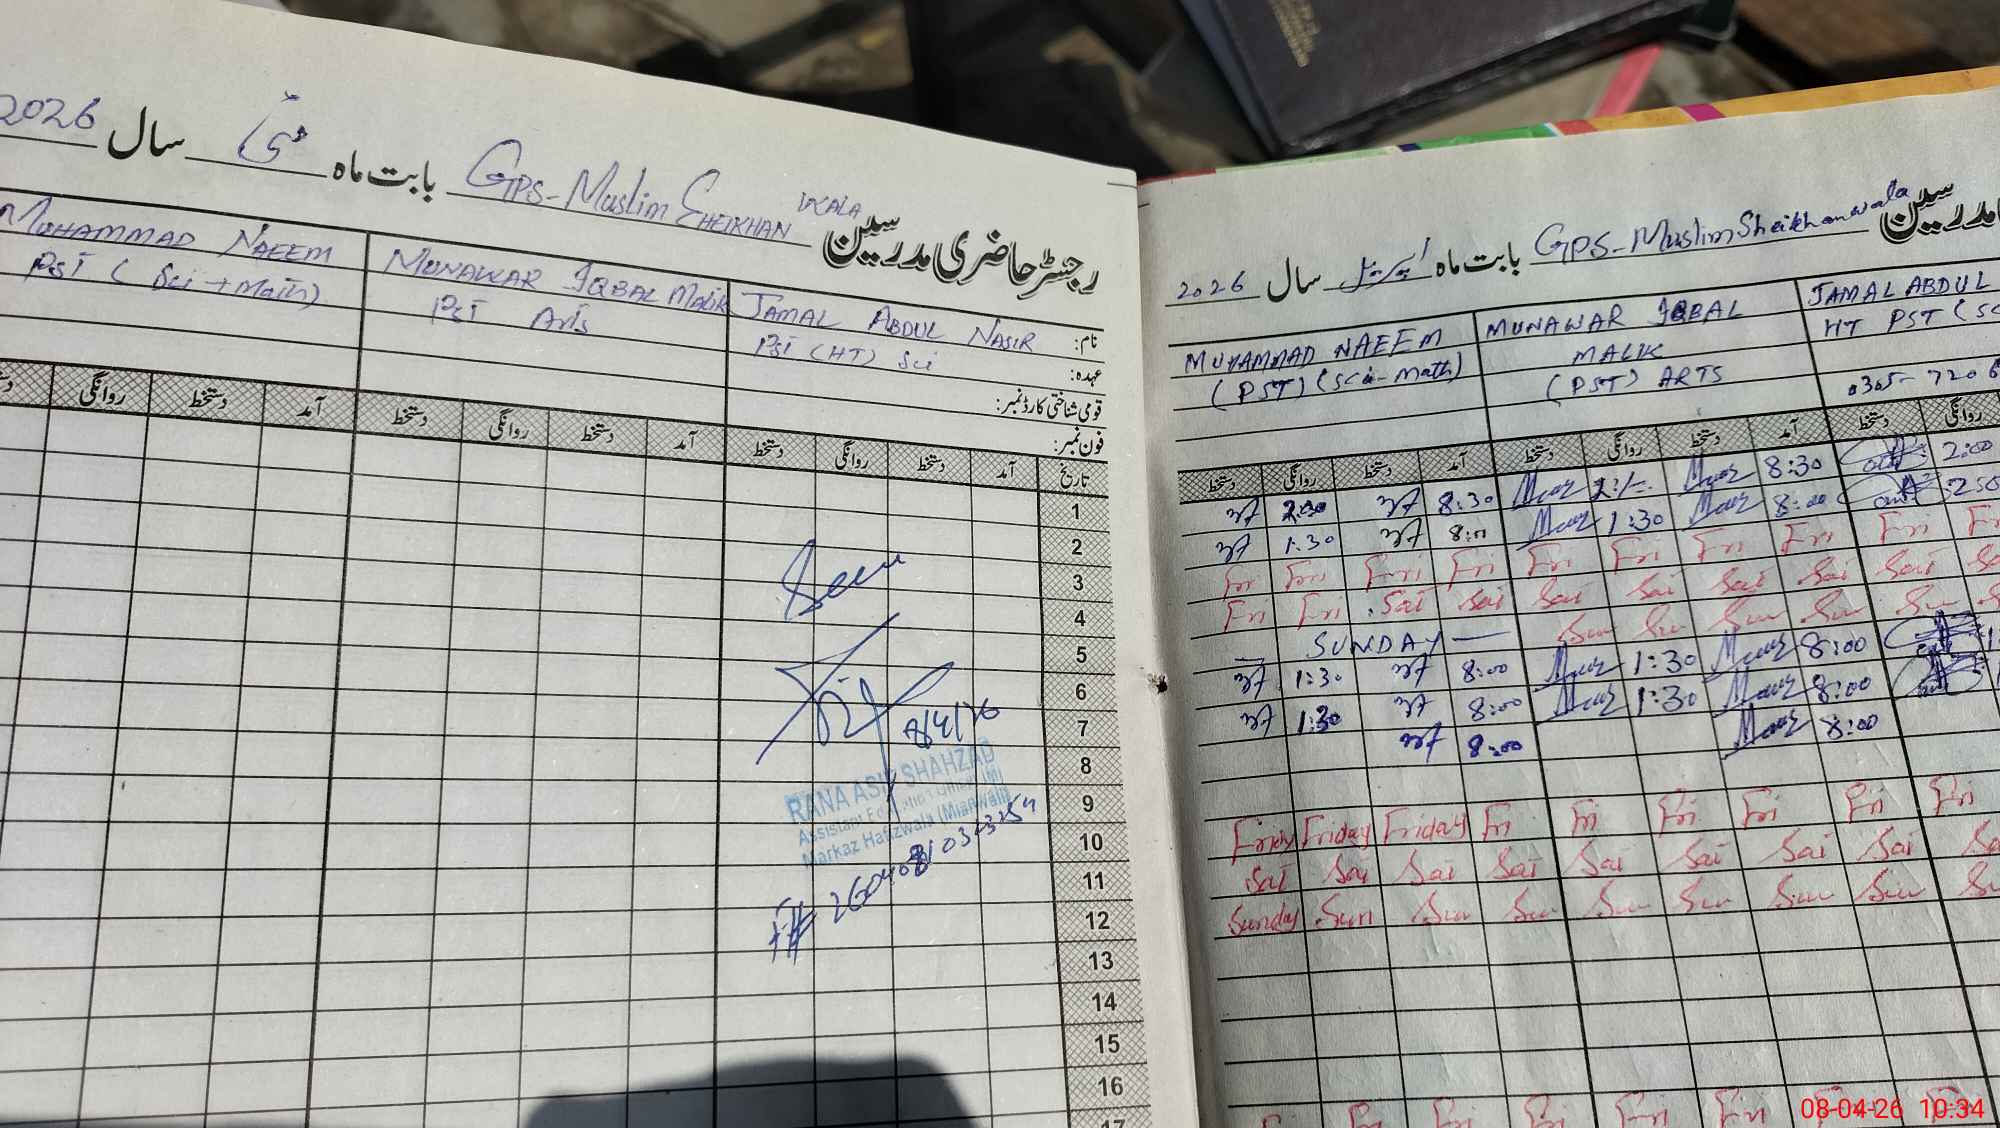 رجسٹر حاضری مدرسین GPS-Muslim SHEIKHAN WALA بابت ماہ مئی سال 2026
نام: JAMAL ABDUL NASIR MUNAWAR IQBAL Malik MUHAMMAD NAEEM
عہدہ: PST (HT) Sci PST Arts PST (Sci + Math)
قومی شناختی کارڈ نمبر:
فون نمبر:
تاریخ آمد دستخط روانگی دستخط آمد دستخط روانگی دستخط آمد دستخط روانگی
1
2
3
Seen
4
5
6
7
8/4/26
8
RANA ASIF SHAHZAD
Assistant Education Officer (M)
9
Markaz Hafizwala (Mianwali)
10
11
12
13
14
15
16
17
مدرسین GPS-Muslim Sheikhanwala بابت ماہ اپریل سال 2026
JAMAL ABDUL MUNAWAR IQBAL MALIK MUHAMMAD NAEEM
HT PST (Sc (PST) ARTS (PST) (Sci-Math)
0305-7206
روانگی دستخط آمد دستخط روانگی دستخط آمد دستخط روانگی دستخط
2:00 8:30 8:30 2:00
8:00 1:30 8:00 1:30
Fri Fri Fri Fri Fri Fri Fri Fri Fri
Sat Sat Sat Sat Sat Sat Sat Fri Fri
Sun Sun Sun Sun Sun SUNDAY
8:00 1:30 8:00 1:30
8:00 1:30 8:00 1:30
8:00 8:00
Fri Fri Fri Fri Fri Fri Friday Friday Friday
Sat Sat Sat Sat Sat Sat Sat Sat
Sun Sun Sun Sun Sun Sun Sun Sunday
Fri Fri Fri Fri Fri Fri
08-04-26 10:34